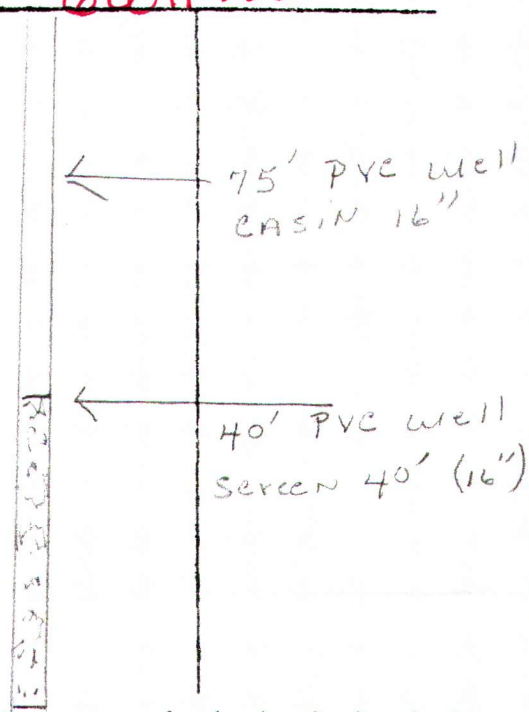 75' PVC well
CASIN 16"
40' PVC well
Screen 40' (16")